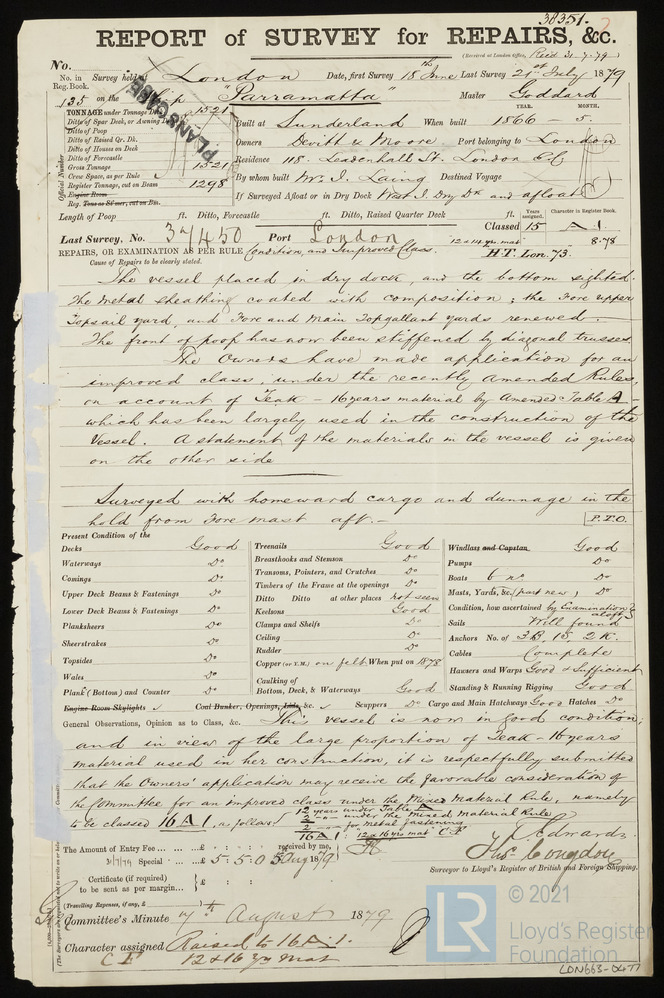 38351.
REPORT of SURVEY for REPAIRS, &c.
(Received at London Office, Recd 31.7.79)
No.
No. in Reg. Book. Survey held at London Date, first Survey 18th June Last Survey 21st July 1879
135 on the Ship "Parramatta" Master Goddard
PLANSCAPE
YEAR. MONTH.
TONNAGE under Tonnage Deck 1521
Ditto of Spar Deck, or Awning Deck
Ditto of Poop
Ditto of Raised Qr. Dk.
Ditto of Houses on Deck
Ditto of Forecastle
Gross Tonnage 1521
Crew Space, as per Rule
Register Tonnage, cut on Beam 1298
Engine Room
Official Number
Built at Sunderland When built 1866 - 5.
Owners Devitt & Moore Port belonging to London
Residence 118. Leadenhall St. London E.C
By whom built Mr. J. Laing Destined Voyage
If Surveyed Afloat or in Dry Dock West I. Dry Dk and afloat
Length of Poop ft. Ditto, Forecastle ft. Ditto, Raised Quarter Deck ft.
Years assigned. Character in Register Book.
Classed 15 A 1
Last Survey, No. 37450 Port London
12 & 14 yrs mat 8.78
H.T. Lon. 73.
REPAIRS, OR EXAMINATION AS PER RULE Condition, and Improved Class.
Cause of Repairs to be clearly stated.
The vessel placed in dry dock, and the bottom sighted.
The metal sheathing coated with composition; the Fore upper
Topsail yard, and Fore and Main Topgallant yards renewed.
The front of poop has now been stiffened by diagonal trusses
The Owners have made application for an
improved class, under the recently amended Rules,
on account of Teak - 16 years material by Amended Table A -
which has been largely used in the construction of the
Vessel. A statement of the materials in the vessel is given
on the other side
Surveyed with homeward cargo and dunnage in the
hold from Fore mast aft.-
P.T.O.
Present Condition of the
Decks Good
Waterways Do
Comings Do
Upper Deck Beams & Fastenings Do
Lower Deck Beams & Fastenings Do
Planksheers Do
Sheerstrakes Do
Topsides Do
Wales Do
Plank (Bottom) and Counter Do
Treenails Good
Breasthooks and Stemson Do
Transoms, Pointers, and Crutches Do
Timbers of the Frame at the openings Do
Ditto Ditto at other places not seen
Keelsons Good
Clamps and Shelfs Do
Ceiling Do
Rudder Do
Copper (or Y.M.) on felt. When put on 1878
Caulking of Bottom, Deck, & Waterways Good
Windlass and Capstan Good
Pumps Do
Boats 6 no. Do
Masts, Yards, &c. (part new) Do
Condition, how ascertained by Examination aloft
Sails Well found
Anchors No. of 3B. 1S. 2K.
Cables Complete
Hausers and Warps Good & Sufficient
Standing & Running Rigging Good
Engine Room Skylights Coal Bunker, Openings, Lids, &c. Scuppers Do Cargo and Main Hatchways Good Hatches Do
General Observations, Opinion as to Class, &c. This vessel is now in good condition;
and in view of the large proportion of Teak - 16 years
material used in her construction, it is respectfully submitted
that the Owners' application may receive the favorable consideration of
the Committee for an improved class under the Mixed Material Rule, namely
to be classed 16 A 1, as follows
12 years under Table A
2 -"- under the mixed material Rule
2 -"- for metal fastening
16 A 1 "12 & 16 yrs mat" C.F.
The Amount of Entry Fee £ : : received by me,
31/7/79 Special £ 5. 5. 0 5 Aug 1879
Certificate (if required) £ : :
to be sent as per margin
(Travelling Expenses, if any, £ )
Thos Congdon
Surveyor to Lloyd's Register of British and Foreign Shipping.
Committee's Minute 7th August 1879
Character assigned Raised to 16 A 1.
C F 12 & 16 yrs mat
LR
© 2021
Lloyd's Register
Foundation
LON663-0477